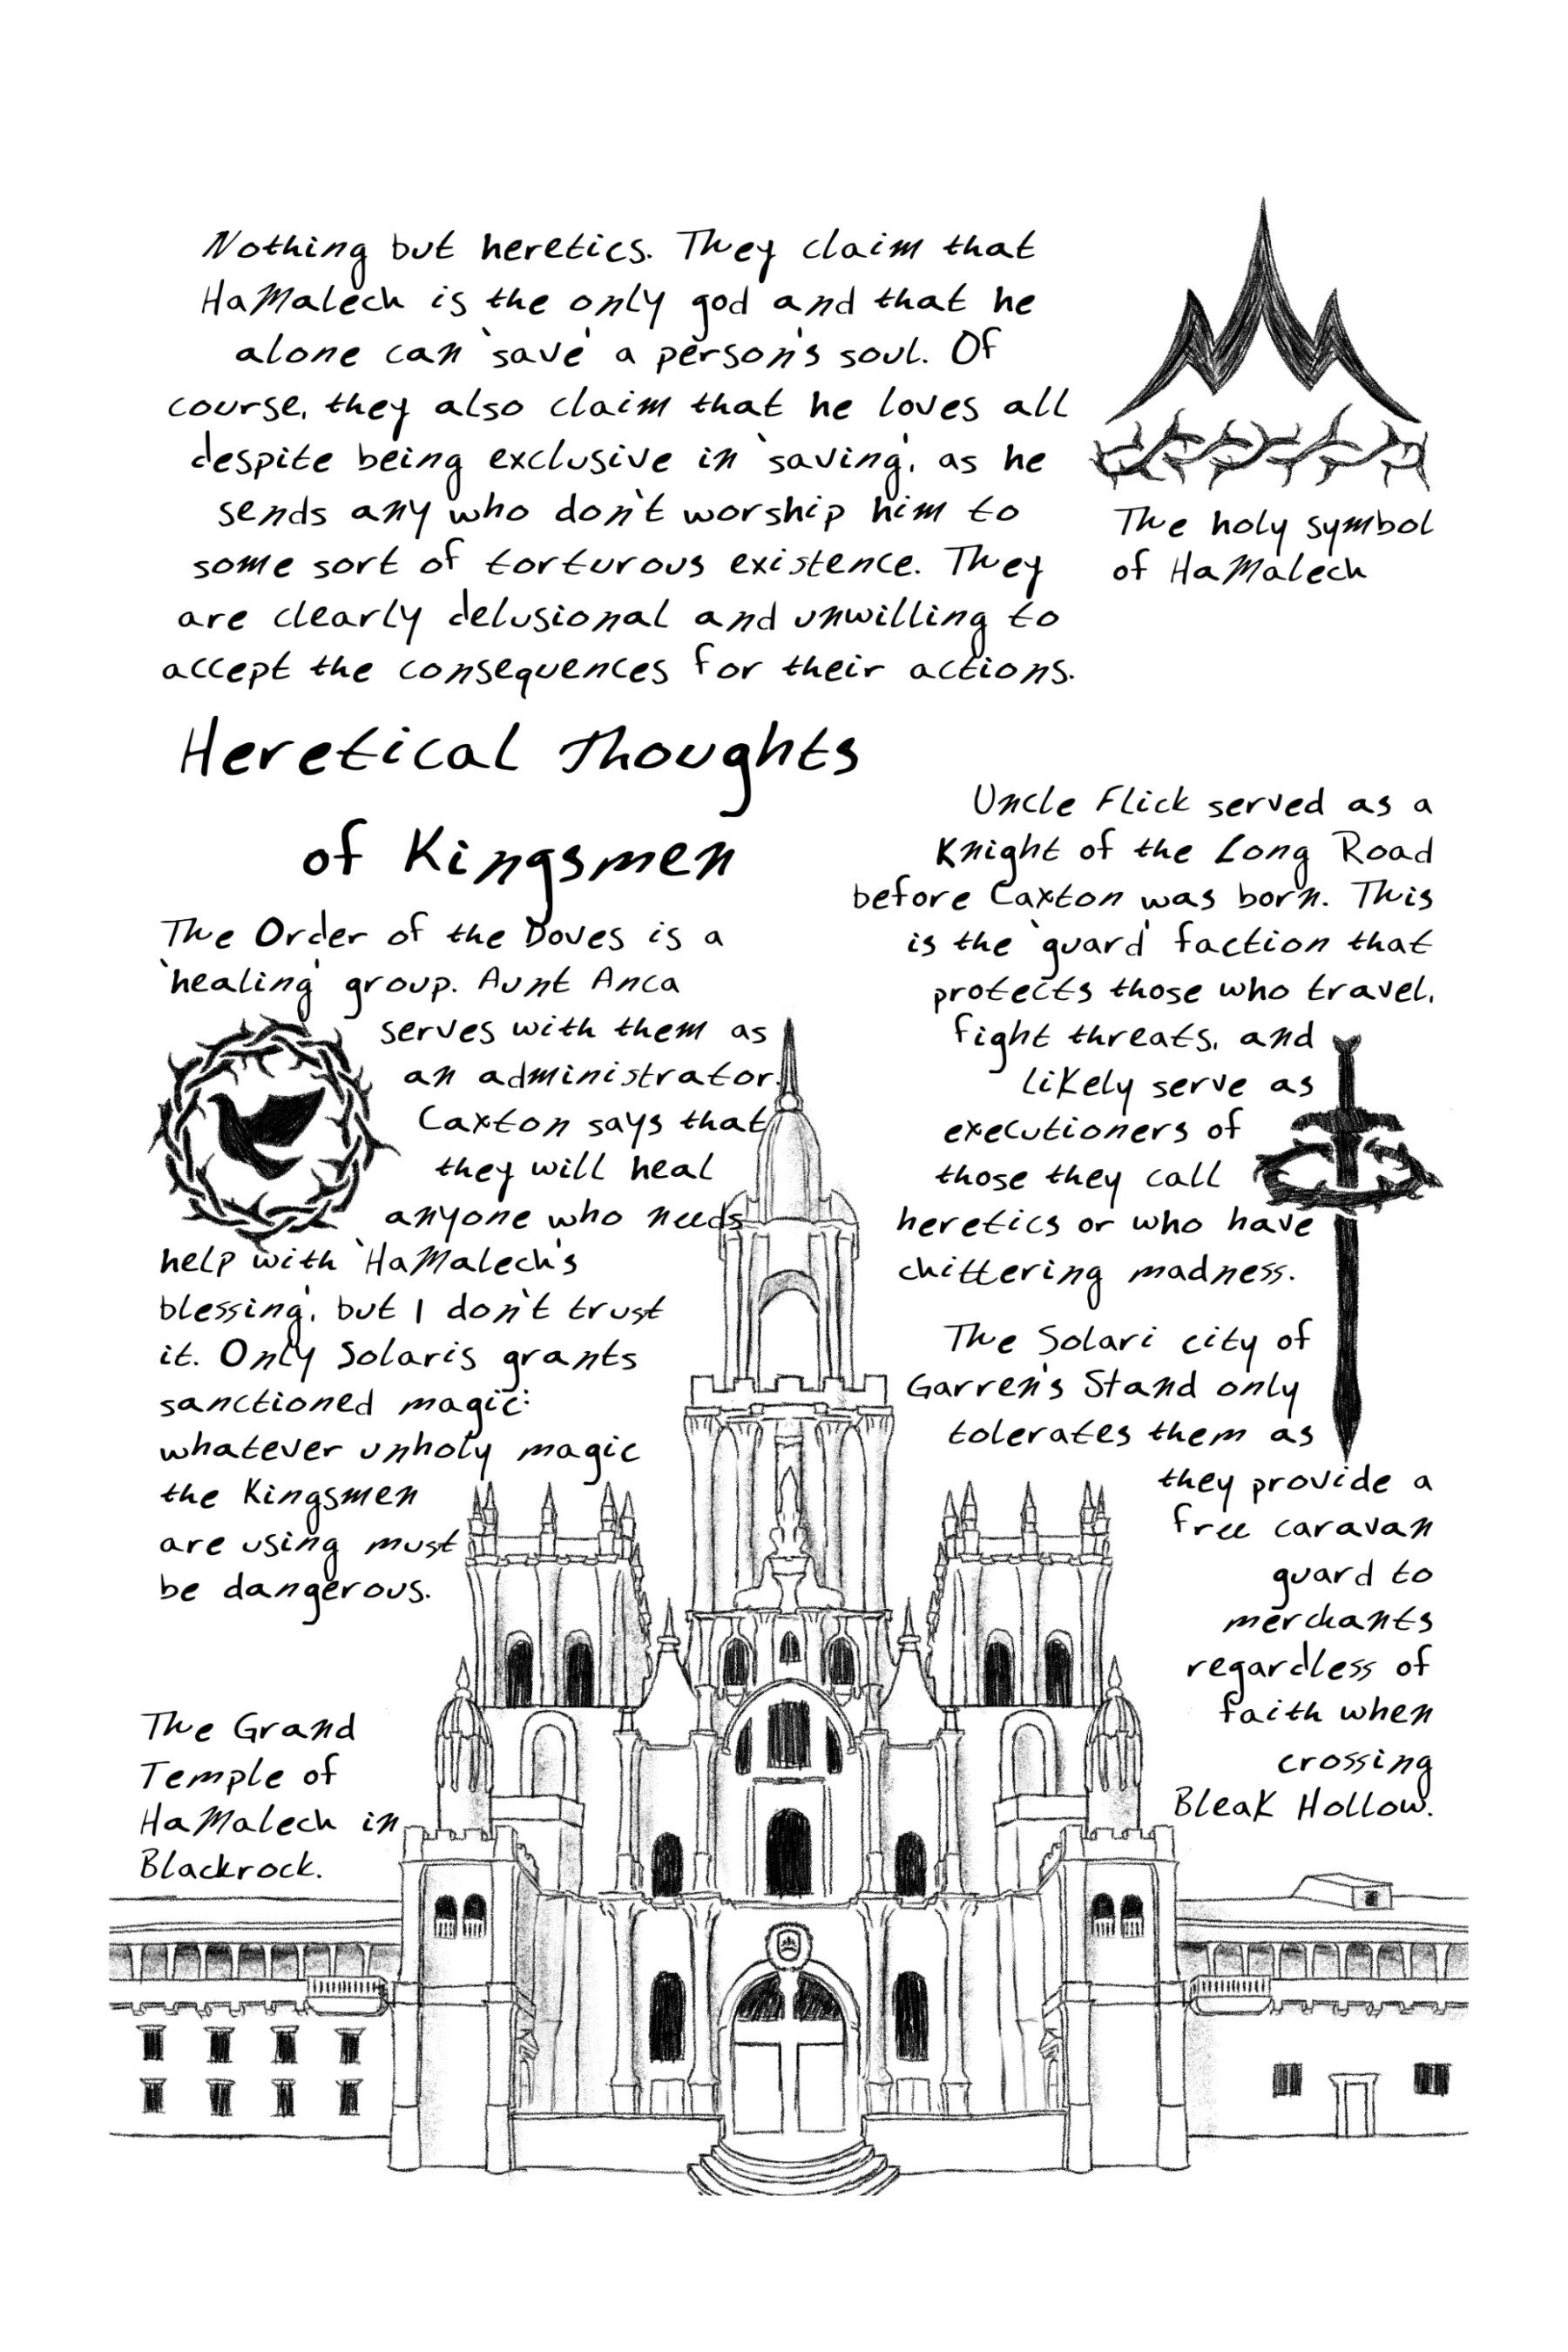 Nothing but heretics. They claim that
HaMalech is the only god and that he
alone can 'save' a person's soul. Of
course, they also claim that he loves all
despite being exclusive in 'saving', as he
sends any who don't worship him to
some sort of torturous existence. They
are clearly delusional and unwilling to
accept the consequences for their actions.
The holy symbol
of HaMalech
Heretical Thoughts
of Kingsmen
The Order of the Doves is a
'healing' group. Aunt Anca
serves with them as
an administrator.
Caxton says that
they will heal
anyone who needs
help with 'HaMalech's
blessing', but I don't trust
it. Only Solaris grants
sanctioned magic:
whatever unholy magic
the Kingsmen
are using must
be dangerous.
Uncle Flick served as a
Knight of the Long Road
before Caxton was born. This
is the 'guard' faction that
protects those who travel,
fight threats, and
likely serve as
executioners of
those they call
heretics or who have
chittering madness.
The Solari city of
Garren's Stand only
tolerates them as
they provide a
free caravan
guard to
merchants
regardless of
faith when
crossing
Bleak Hollow.
The Grand
Temple of
HaMalech in
Blackrock.